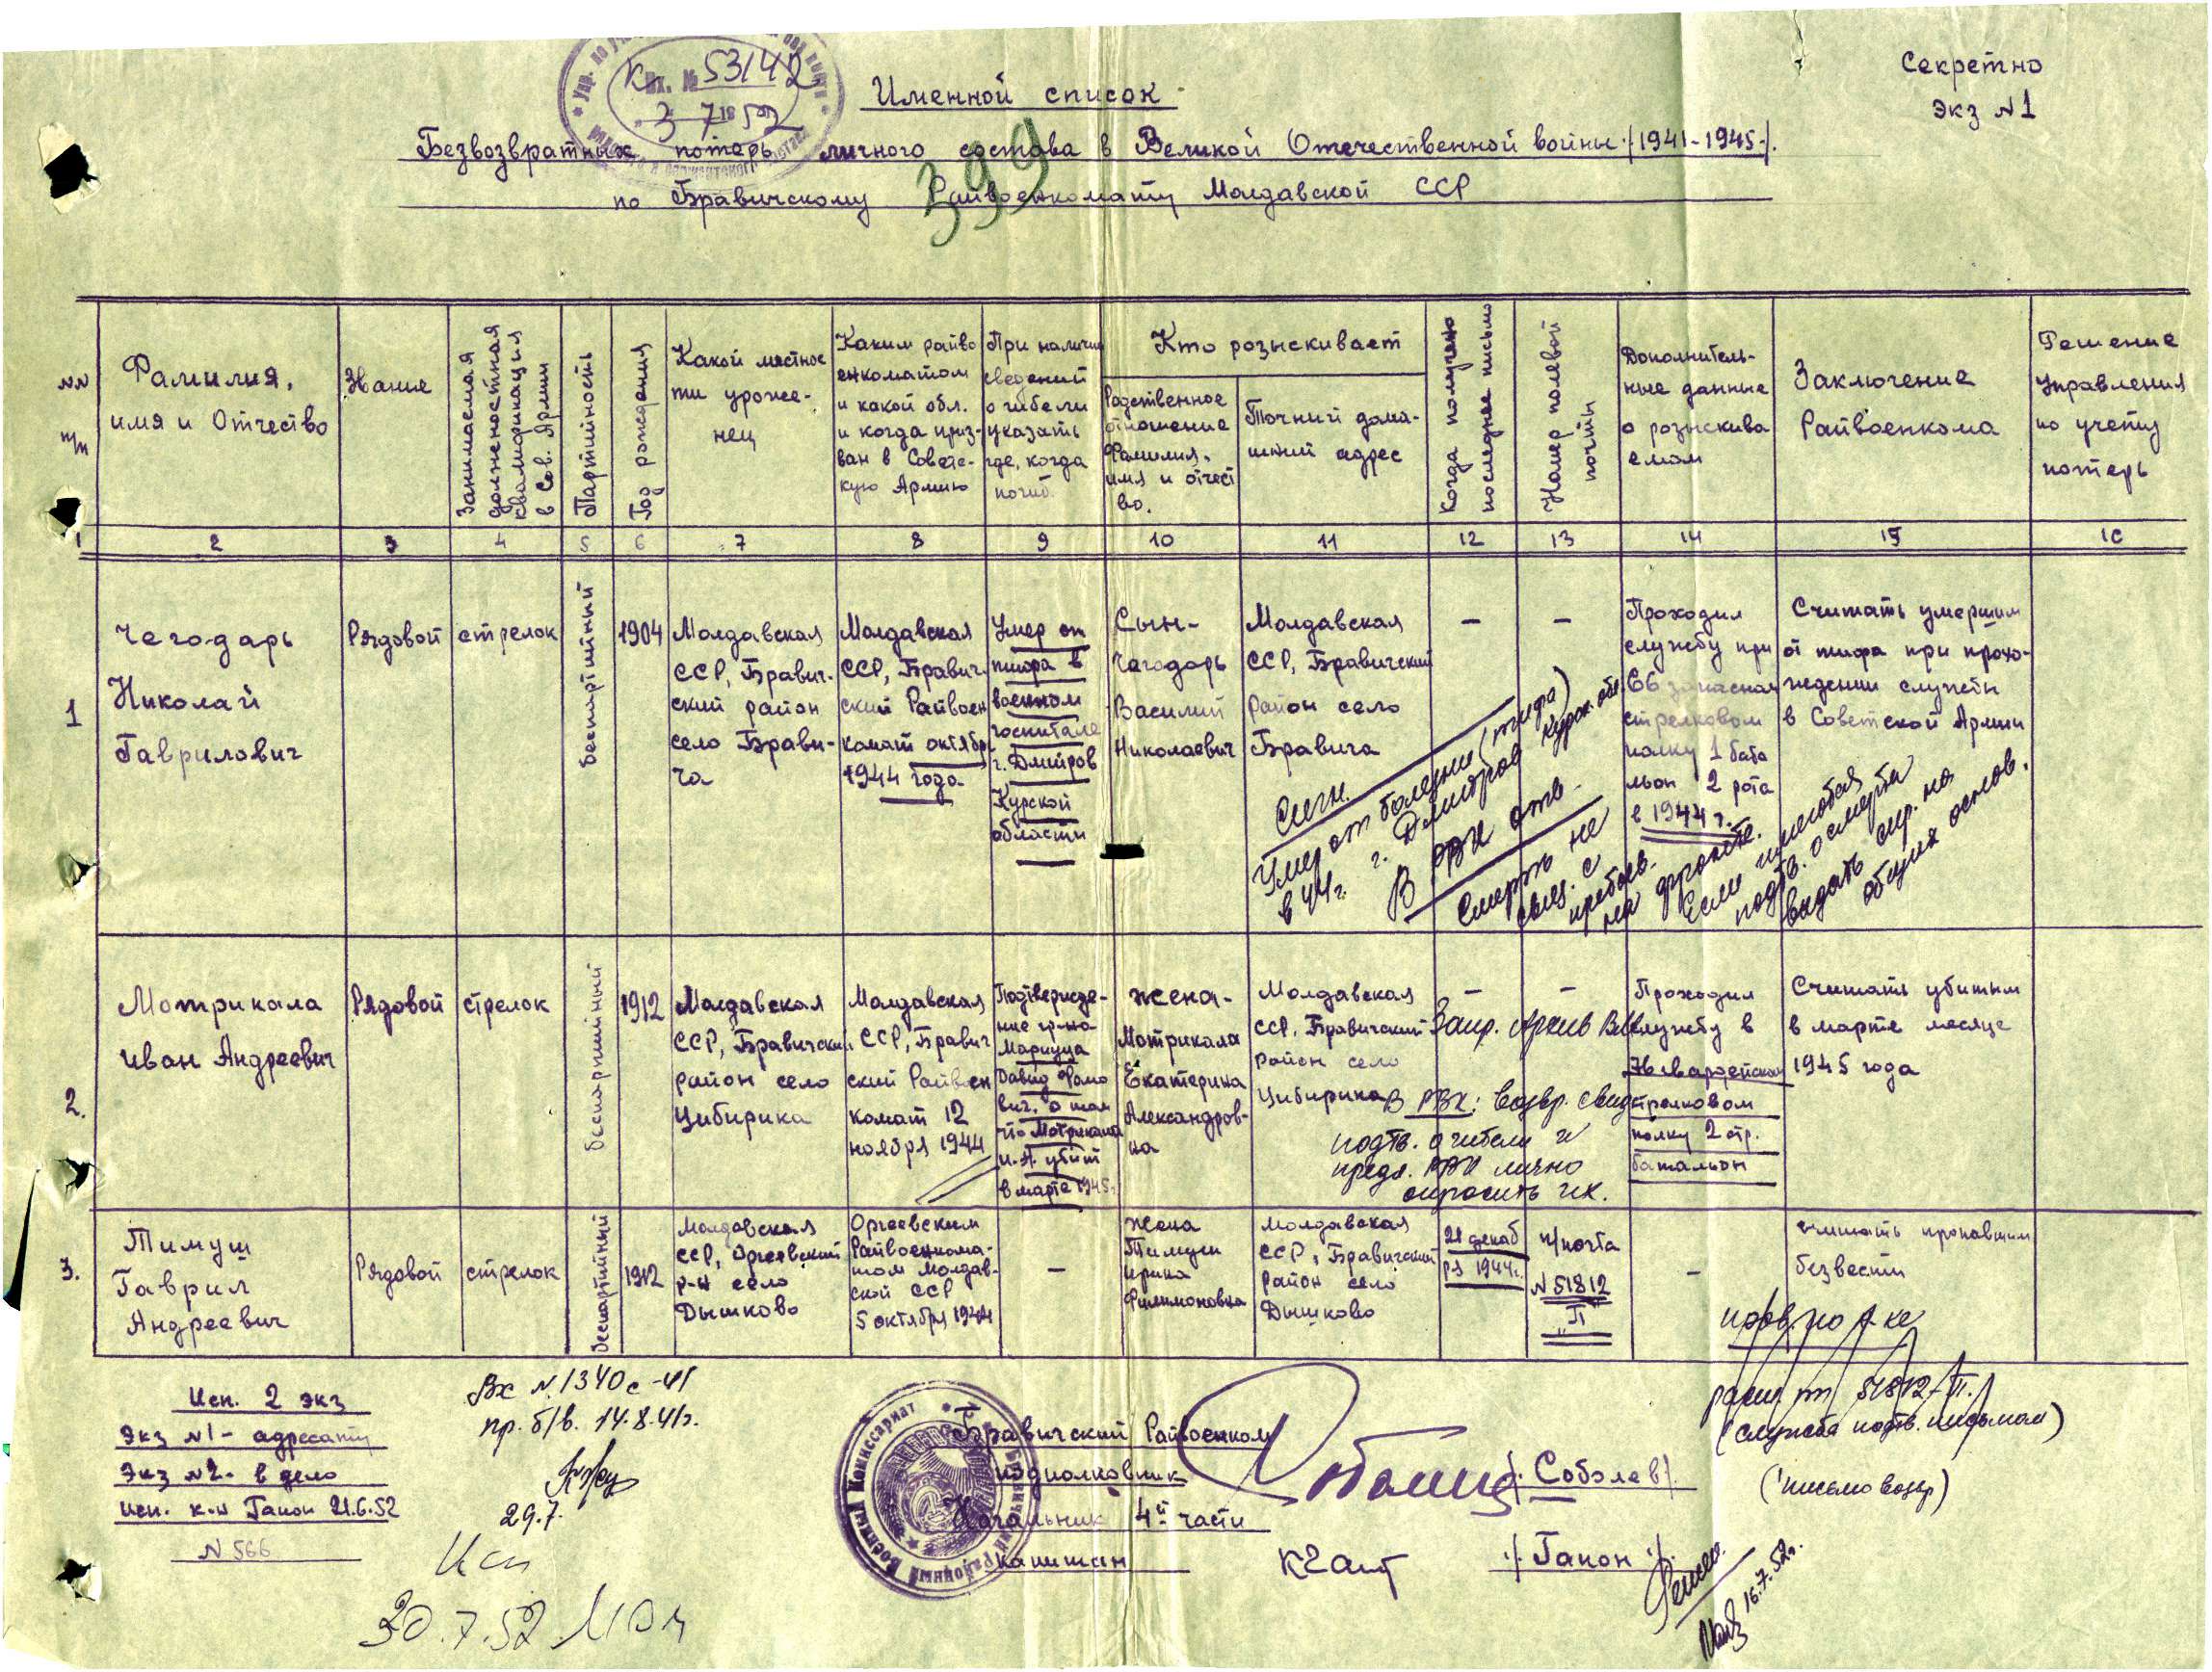 Секретно
экз №1
Вх. № 53142
3 7 1952
Именной список
Безвозвратных потерь личного состава в Великой Отечественной войны /1941-1945/.
по Бравичскому Райвоенкомату Молдавской ССР
399
№№
п/п
Фамилия,
имя и Отчество
Звание
Занимаемая
должностная
квалификация
в Сов. Армии
Партийность
Год рождения
Какой местнос
ти уроже-
нец
Каким райво
енкоматом
и какой обл.
и когда приз-
ван в Советс-
кую Армию
При наличии
сведений
о гибели
указать
где, когда
погиб.
Кто розыскивает
Родственное
отношение
Фамилия,
имя и отчест
во.
Точный дома-
шний адрес
Когда получено
последнее письмо
Номер полевой
почты
Дополнитель-
ные данные
о розыскива
емом
Заключение
Райвоенкома
Решение
Управления
по учету
потерь
1 2 3 4 5 6 7 8 9 10 11 12 13 14 15 16
1
Чегодарь
Николай
Гаврилович
Рядовой
стрелок
беспартийный
1904
Молдавская
ССР, Бравич-
ский район
село Брави-
ча
Молдавская
ССР, Бравич-
ский Райвоен
комат октябрь
1944 года.
Умер от
тифа в
военном
госпитале
г. Дмитров
Курской
области
Сын-
Чегодарь
Василий
Николаевич
Молдавская
ССР, Бравичский
район село
Бравича
–
–
Проходил
службу при
66 запасном
стрелковом
полку 1 бата
льон 2 рота
в 1944 г.
Считать умершим
от тифа при прохо-
ждении службы
в Советской Армии
Умер от болезни (тифа)
в 44 г. г. Дмитров Курск. обл.
В РВК отв.
Смерть не
связ. с
пребыв.
на фронте.
подтв. о смерти
выдать спр. на
общих основ.
2.
Мотрикала
Иван Андреевич
Рядовой
стрелок
беспартийный
1912
Молдавская
ССР, Бравичский
район село
Цибирика
Молдавская
ССР, Бравич
ский Райвоен
комат 12
ноября 1944
Подтвержде-
ние гр-на
Мариуца
Давид Фомо
вич. о том
что Мотрикала
И.А. убит
в марте 1945г.
жена-
Мотрикала
Екатерина
Александров-
на
Молдавская
ССР, Бравичский
район село
Цибирика
–
–
Проходил
службу в
76 гвардейском
стрелковом
полку 2 стр.
батальон
Считать убитым
в марте месяце
1945 года
В РВК: возвр. свид.
подтв. о гибели и
предл. РВК лично
опросить их.
3.
Тимуш
Гаврил
Андреевич
Рядовой
стрелок
беспартийный
1912
Молдавская
ССР, Оргеевский
р-н село
Дышково
Оргеевским
Райвоенкома-
том Молдав-
ской ССР
5 октября 1944
–
жена
Тимуш
Ирина
Филимоновна
Молдавская
ССР, Бравичский
район село
Дышково
21 декаб
ря 1944г.
п/почта
№ 51812
"П"
–
считать пропавшим
безвести
(служба подтв. письмом)
(письмо возвр)
Исп. 2 экз
Экз №1 - адресату
Экз №2 - в дело
Исп. к-н Гапон 21.6.52
№ 566
Вх №1340с-41
пр. б/в. 14.8.41г.
29.7.
Исп
30.7.52
Военный Комиссариат
Бравичский Райвоенком
подполковник
/Соболев/.
Начальник 4й части
капитан
/Гапон/.
16.7.52г.